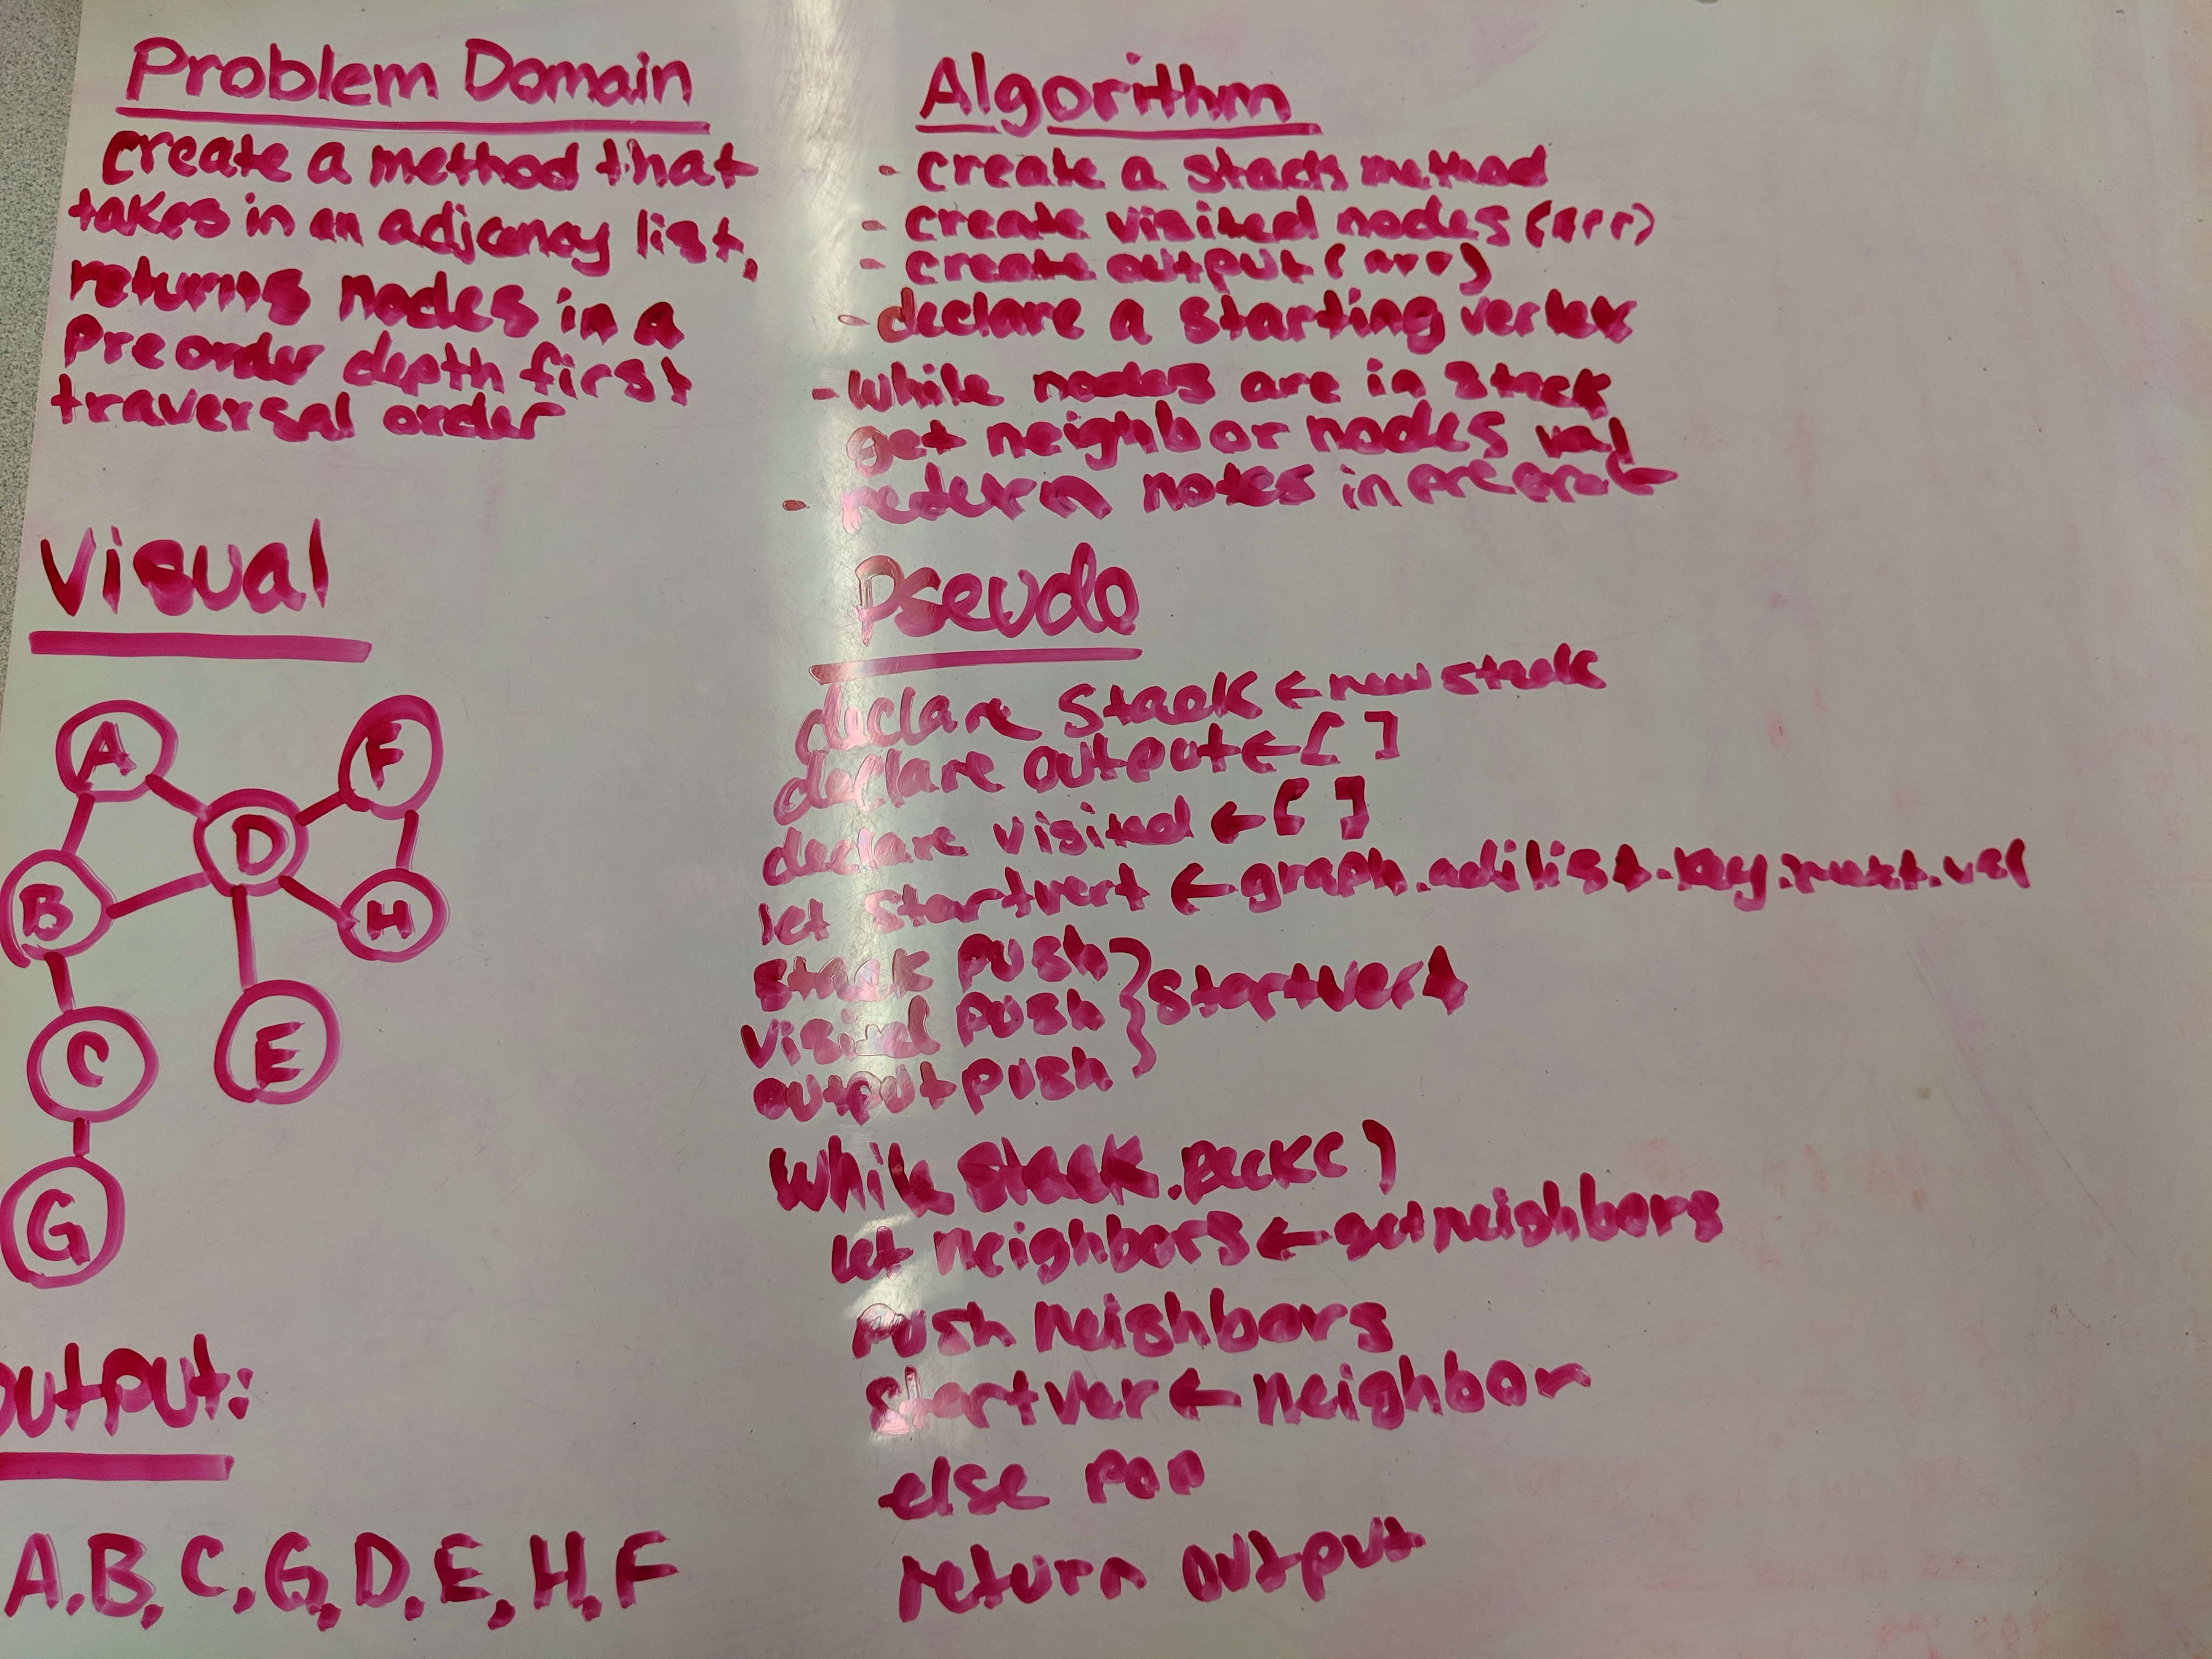 Problem Domain
create a method that
takes in an adjceney list,
returns nodes in a
Pre order depth first
traversal order
Visual
A
F
D
B
H
C
E
G
output:
A, B, C, G, D, E, H, F
Algorithm
- create a stack method
- create visited nodes (arr)
- create output (arr)
- declare a starting vertex
- while nodes are in stack
get neighbor nodes val
- return notes in
Pseudo
declare Stack ← new stack
declare output ← [ ]
declare visited ← [ ]
let startvert ← graph.adjlist.key.next.val
stack push
visited push } startvert
output push
While stack.peek()
let neighbors ← getneighbors
push neighbors
startver ← neighbor
else pop
return output